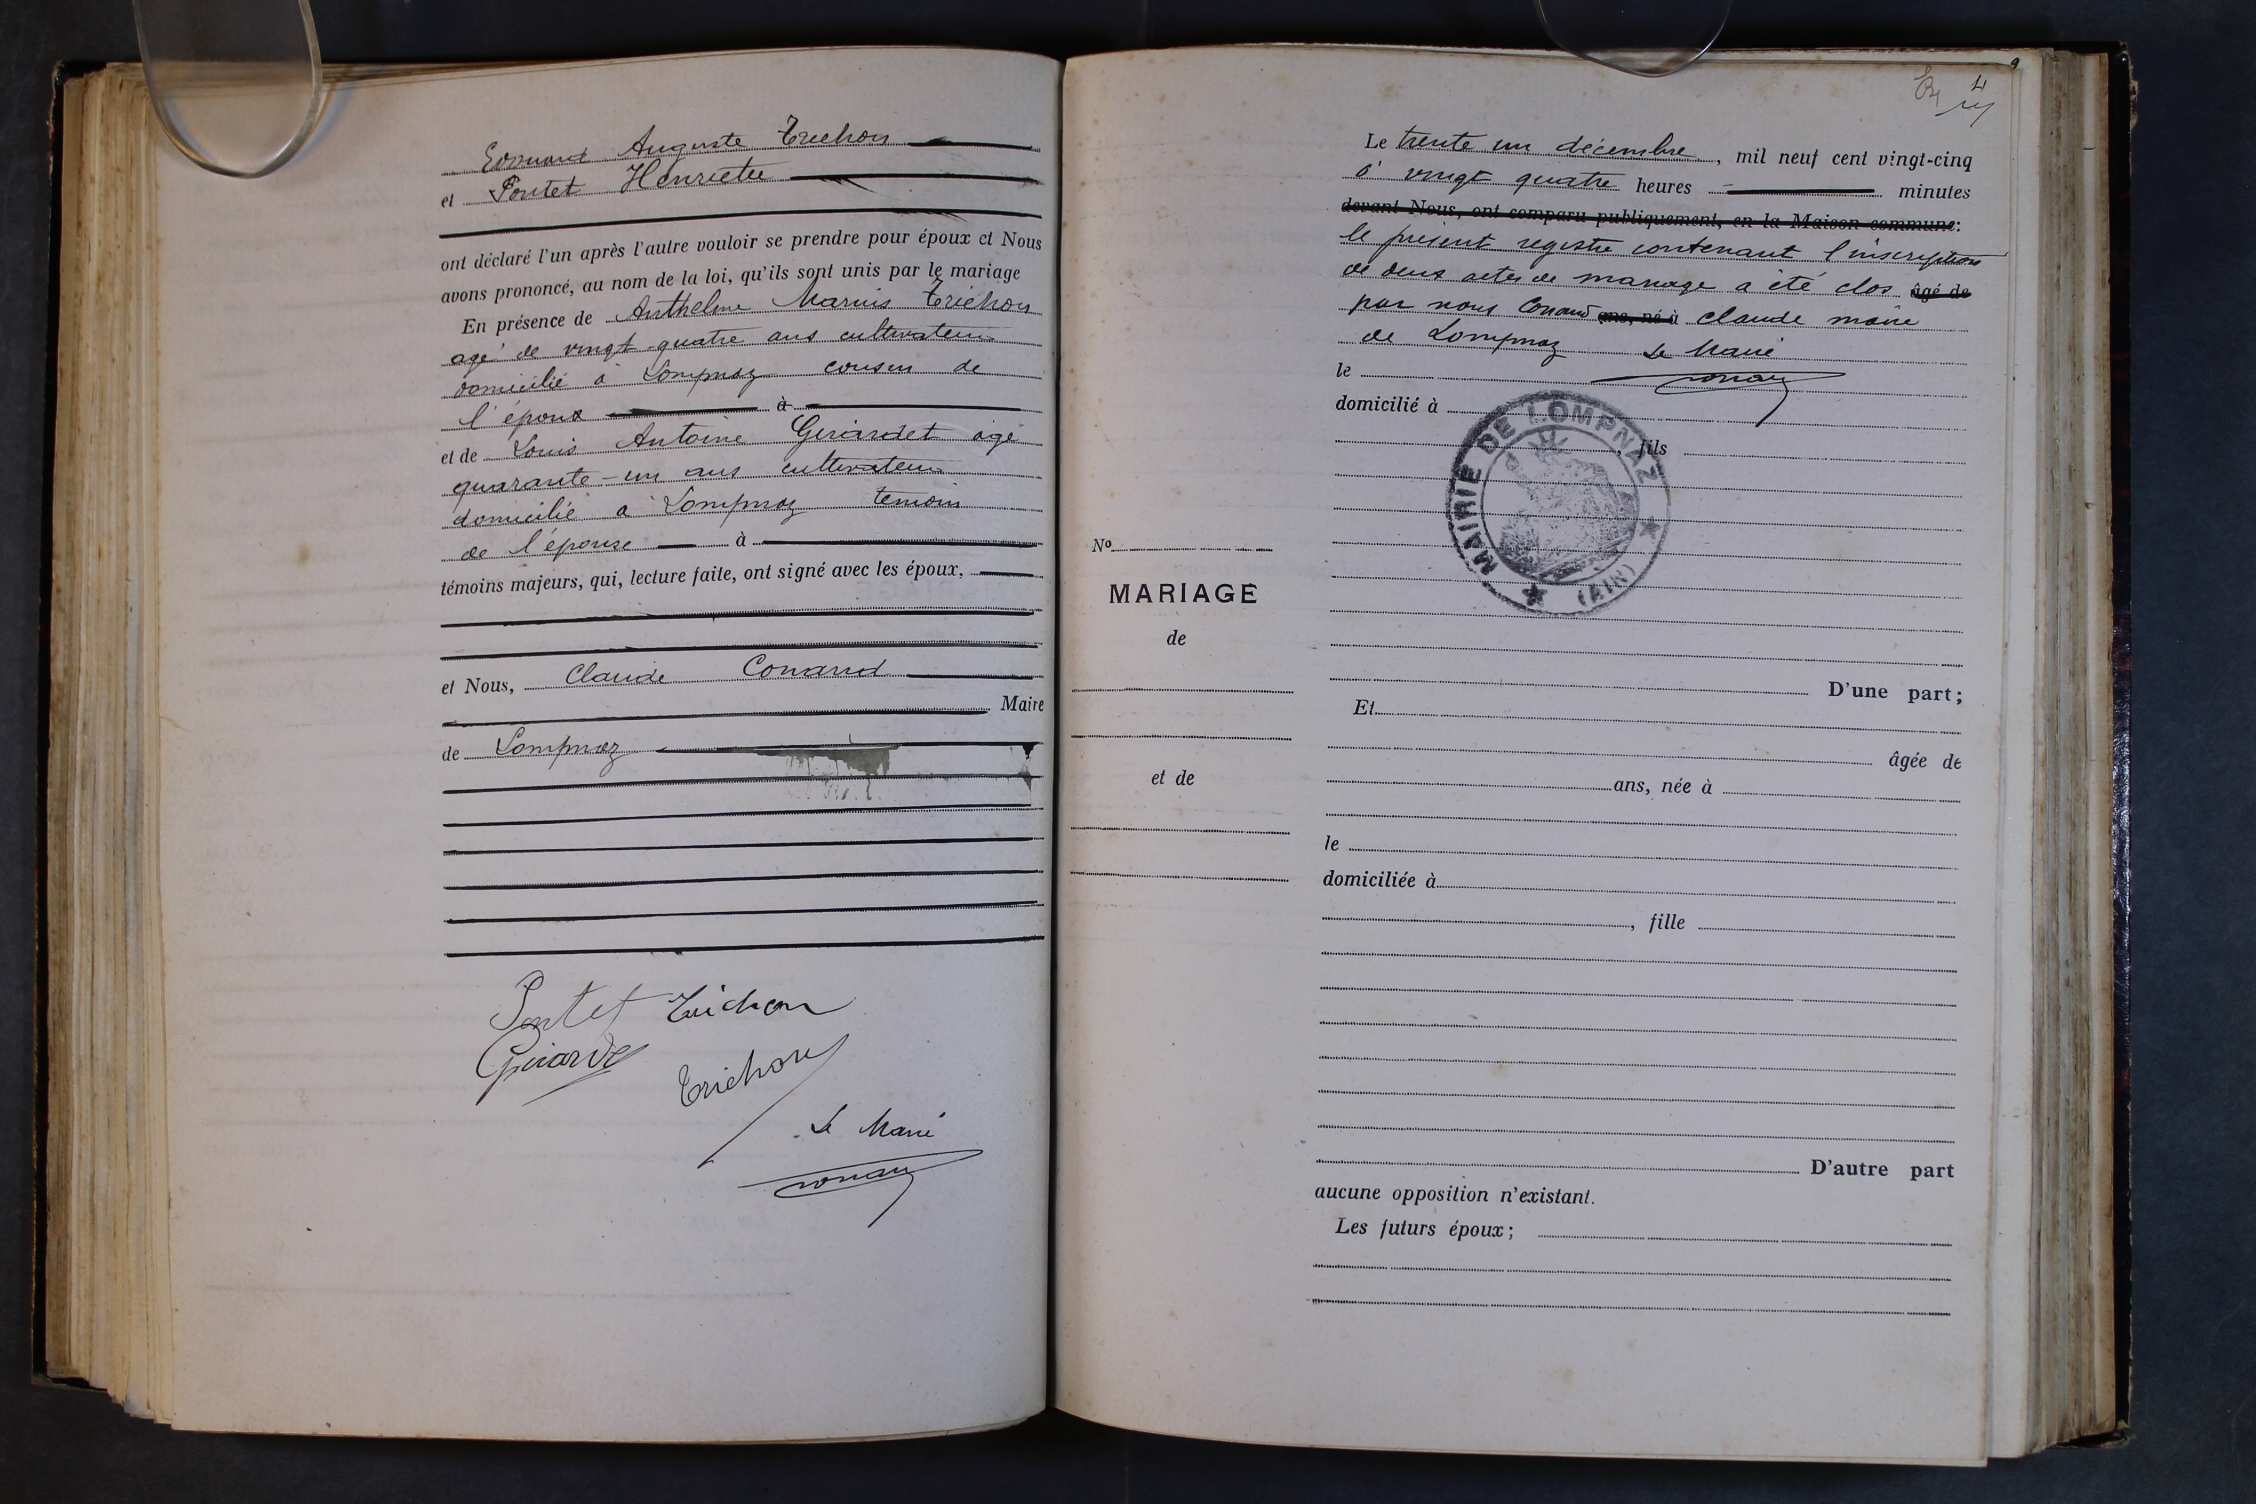 Edouard Auguste Trichon
et Pontet Henriette
ont déclaré l'un après l'autre vouloir se prendre pour époux et Nous
avons prononcé, au nom de la loi, qu'ils sont unis par le mariage
En présence de Anthelme Marius Trichon
agé de vingt-quatre ans cultivateur
domicilié à Lompnaz cousin de
l'époux à
et de Louis Antoine Girardet agé
quarante-un ans cultivateur
domicilié a Lompnaz temoin
de l'épouse à
témoins majeurs, qui, lecture faite, ont signé avec les époux,
et Nous, Claude Conand
Maire
de Lompnaz
Pontet Trichon
Girardet
Trichon
Le Maire
Conand
4
Le trente un décembre, mil neuf cent vingt-cinq
à vingt quatre heures minutes
devant Nous, ont comparu publiquement, en la Maison commune:
le présent registre contenant l'inscription
de deux actes de mariage a été clos âgé de
par nous Conand ans, né à Claude maire
de Lompnaz Le Maire
le Conand
domicilié à
MAIRIE DE LOMPNAZ
(AIN)
, fils
No
MARIAGE
de
D'une part;
Et
âgée de
et de
ans, née à
le
domiciliée à
, fille
D'autre part
aucune opposition n'existant.
Les futurs époux;